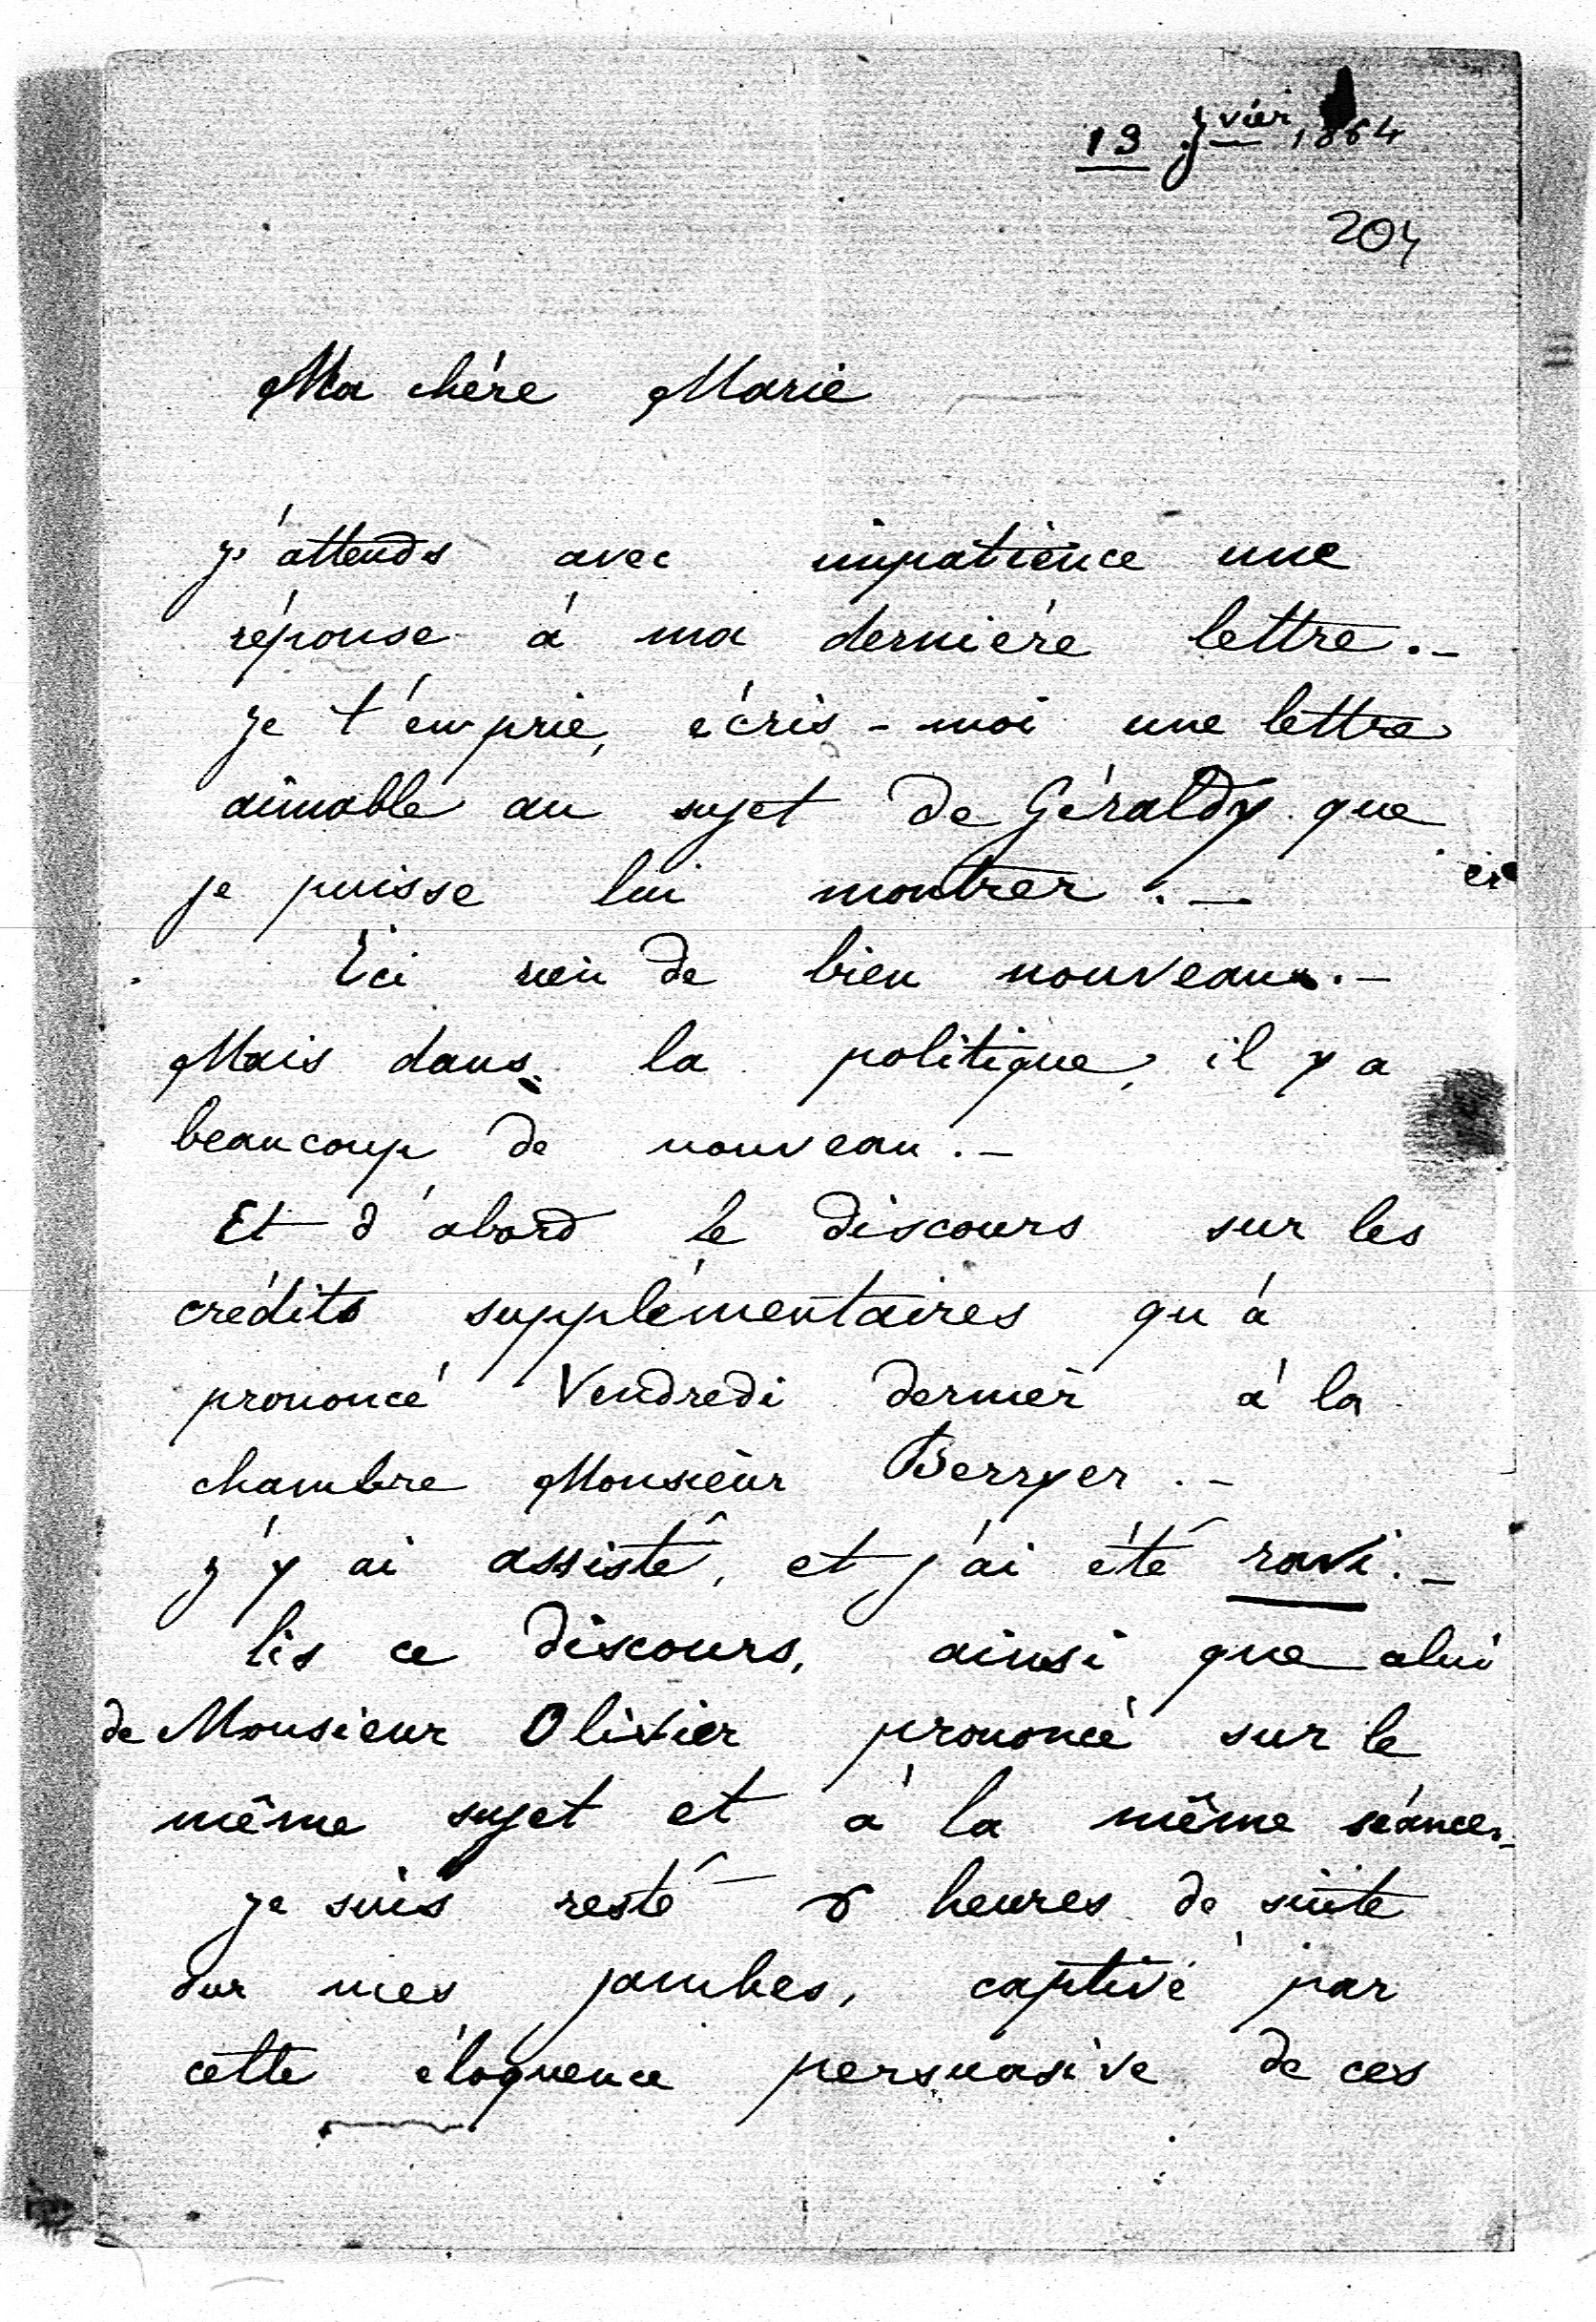 13 Jvier 1864
204
Ma chère Marie
j'attends avec impatience une
réponse à ma dernière lettre._
je t'en prie, écris-moi une lettre
aimable au sujet de Géraldy que
je puisse lui montrer._
Ici rien de bien nouveau._
Mais dans la politique, il y a
beaucoup de nouveau._
Et d'abord le discours sur les
crédits supplémentaires qu'à
prononcé Vendredi dernier à la
chambre Monsieur Berryer._
j'y ai assisté, et j'ai été ravi._
lis ce discours, ainsi que celui
de Monsieur Olivier prononcé sur le
même sujet et à la même séance._
je suis resté heures de suite
sur mes jambes, captivé par
cette éloquence persuasive de ces